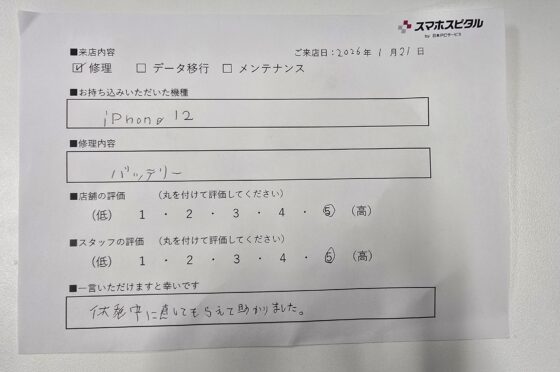 スマホスピタル
by 日本PCサービス
■来店内容
ご来店日：2026年1月21日
☑ 修理 □ データ移行 □ メンテナンス
■お持ち込みいただいた機種
iPhone 12
■修理内容
バッテリー
■店舗の評価 （丸を付けて評価してください）
（低） 1 ・ 2 ・ 3 ・ 4 ・ 5 （高）
■スタッフの評価 （丸を付けて評価してください）
（低） 1 ・ 2 ・ 3 ・ 4 ・ 5 （高）
■一言いただけますと幸いです
中に直してもらえて助かりました。